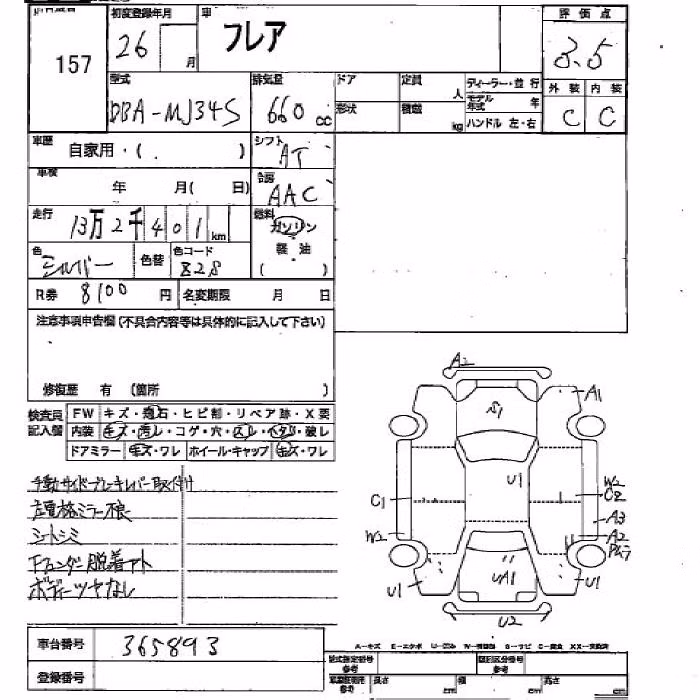 157
初度登録年月
26 月
車
フレア
評価点
3.5
外装 内装
C C
型式
DBA-MJ34S
排気量
660 cc
ドア
形状
定員 人
積載 kg
ディーラー・並行
モデル年式 年
ハンドル 左・右
車歴
自家用・( )
シフト
AT
車検
年 月( 日)
冷房
AAC
走行
13万2千401km
燃料
ガソリン
軽油
( )
色
シルバー
色替
色コード
Z2S
R券 8100 円
名変期限 月 日
注意事項申告欄(不具合内容等は具体的に記入して下さい)
修復歴 有 (箇所 )
検査員記入欄
FW キズ・飛石・ヒビ割・リペア跡・X要
内装 キズ・汚レ・コゲ・穴・スレ・ヘタリ・破レ
ドアミラー キズ・ワレ ホイール・キャップ キズ・ワレ
手動サイドブレーキレバー取付け
左電格ミラー不良
シートシミ
Fフェンダー脱着アト
ボディーツヤなし
A2
A1
S1
U1
C1
W2
C2
A3
W2
A2
U1
UA1
U1
U2
車台番号 365893
登録番号
A-キズ E-エクボ
型式指定番号 参考
類別区分番号 参考
長さ cm
幅 cm
高さ cm